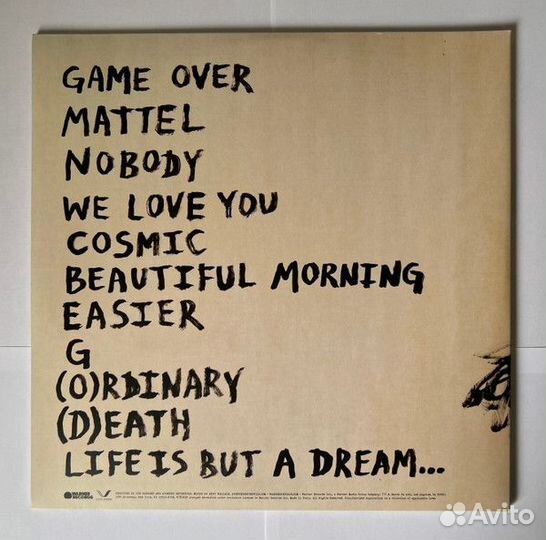 GAME OVER
MATTEL
NOBODY
WE LOVE YOU
COSMIC
BEAUTIFUL MORNING
EASIER
G
(O)RDINARY
(D)EATH
LIFE IS BUT A DREAM...
WARNER RECORDS
Avito